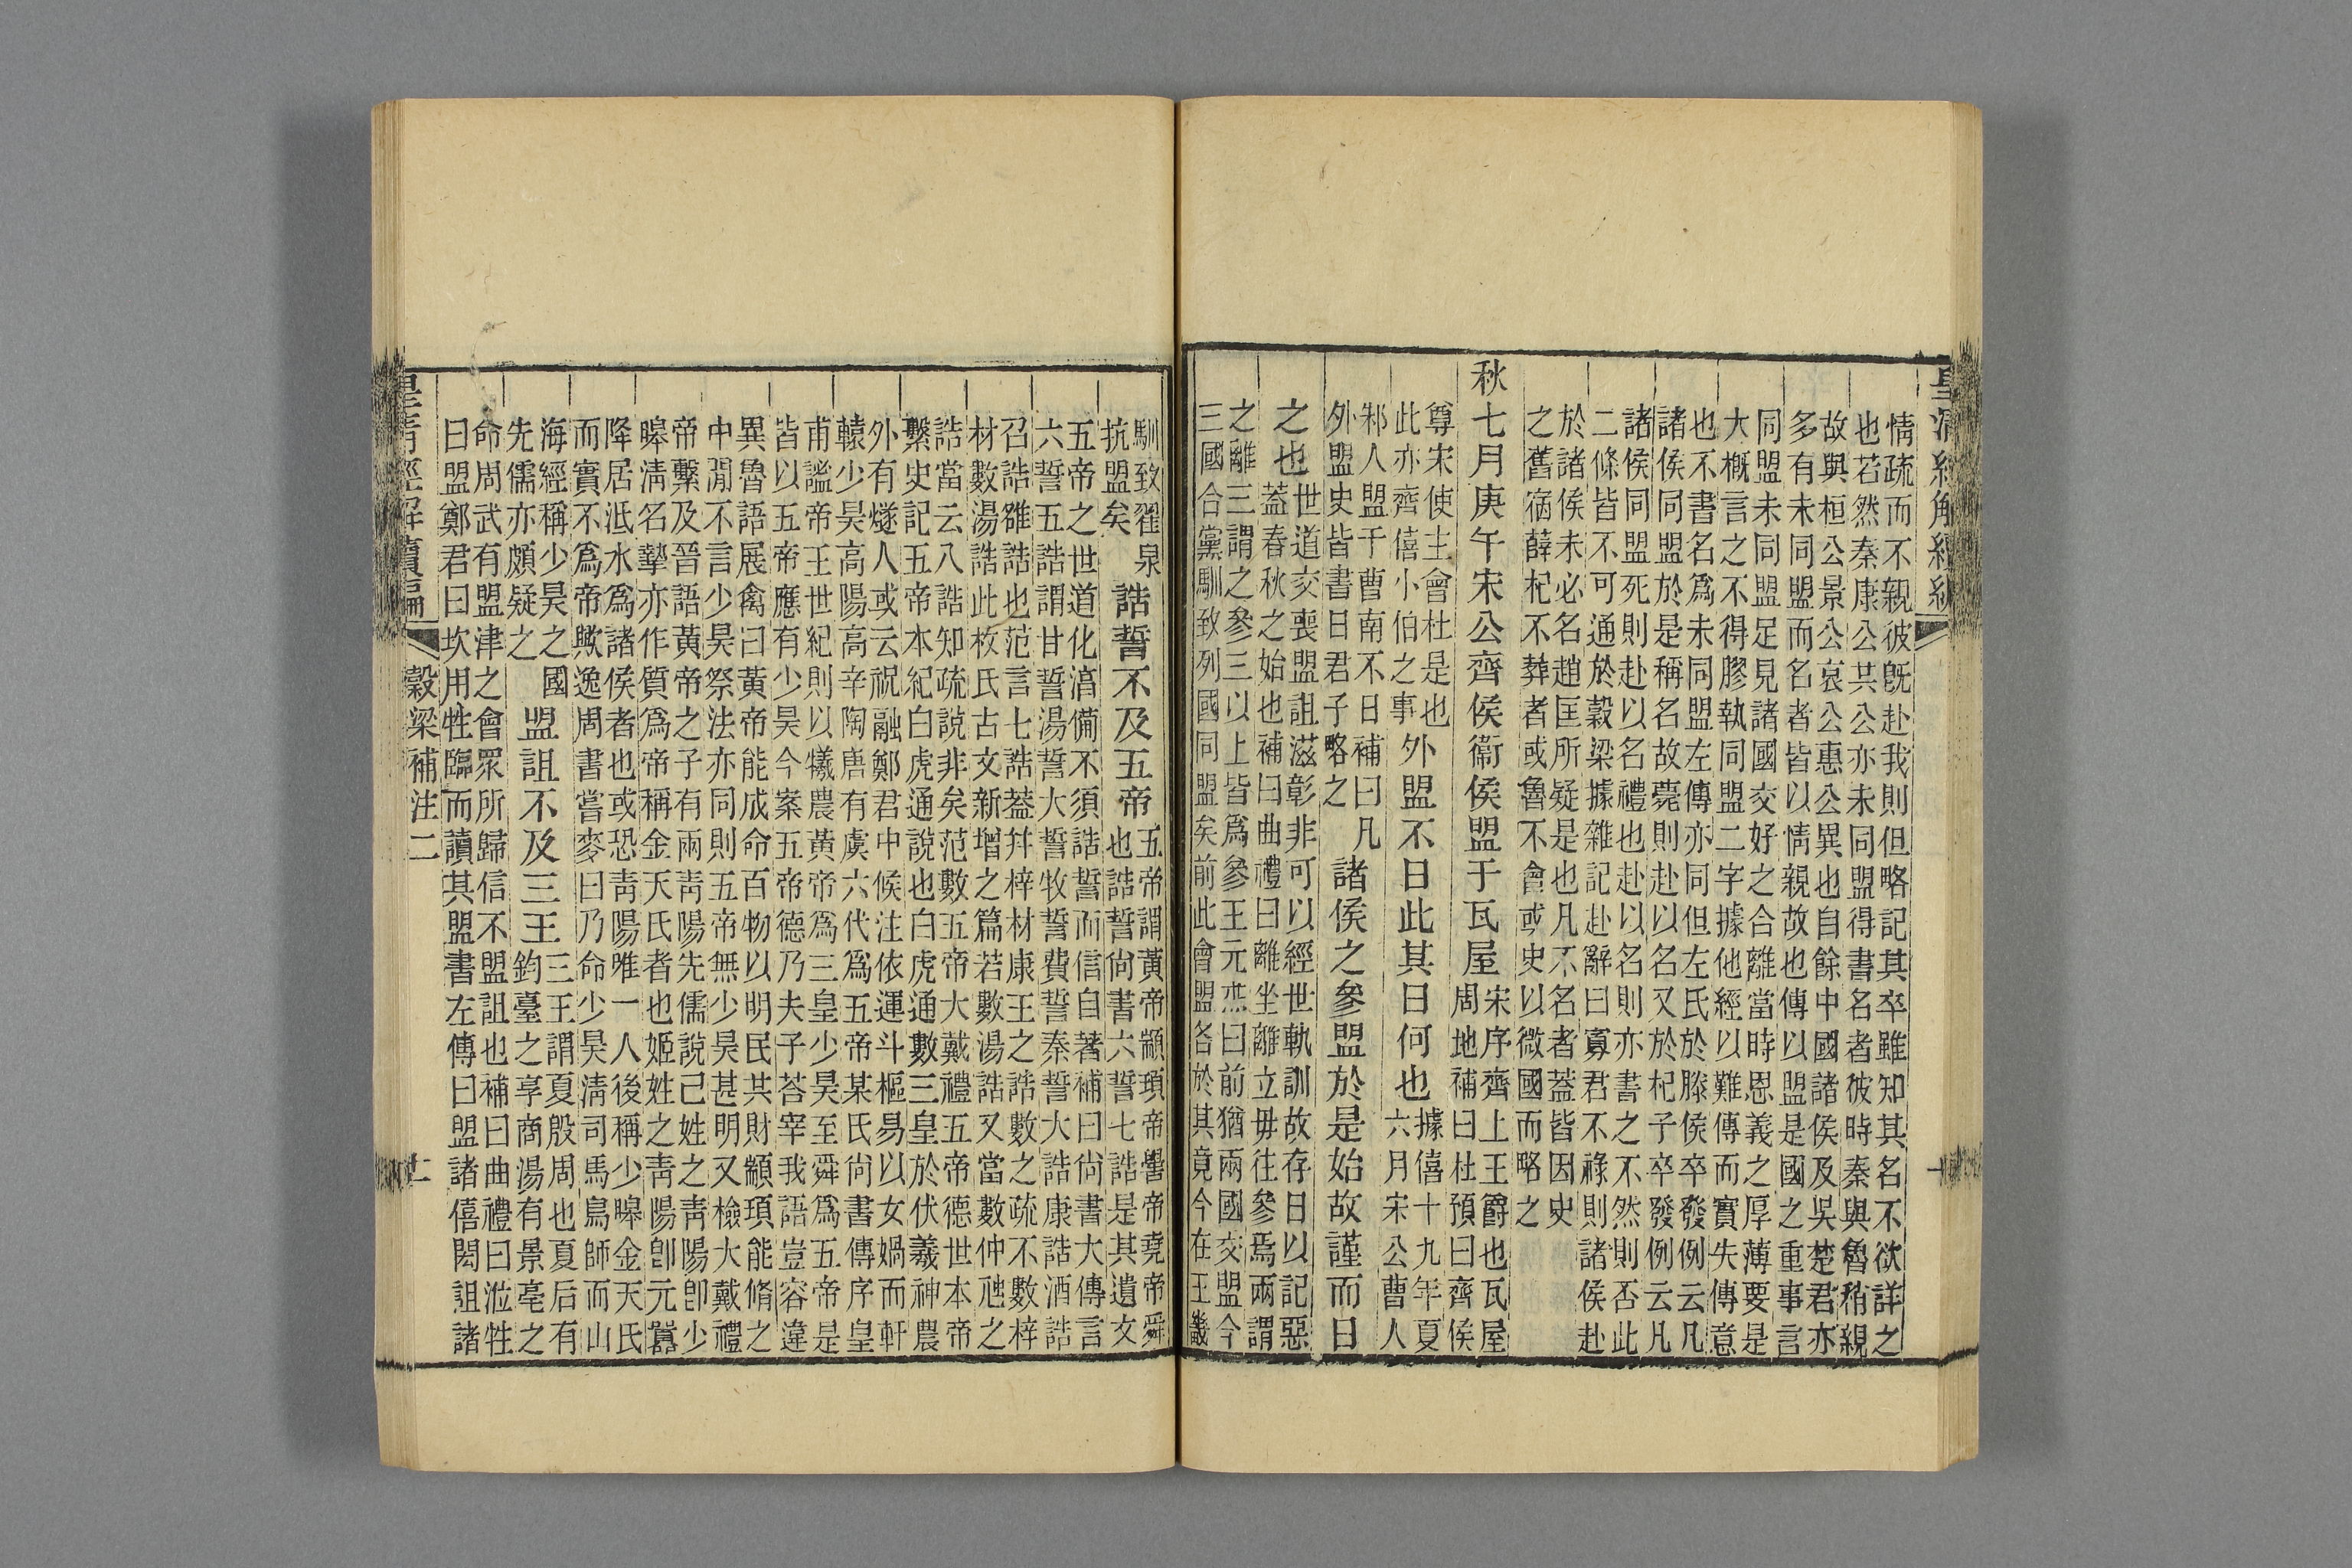 皇清經解續編
情疏而不親彼既赴我則但略記其卒雖知其名不欲詳之
也若然秦康公共公亦未同盟得書名者彼時秦與魯稍親
故與桓公景公哀公惠公異也自餘中國諸侯及吳楚君亦
多有未同盟而名者皆以情親故也傳以盟是國之重事言
同盟未同盟足見諸國交好之合離當時恩義之厚薄要是
大概言之不得膠執同盟二字據他經以難傳而實失傳意
也不書名爲未同盟左傳亦同但左氏於滕侯卒發例云凡
諸侯同盟於是稱名故薨則赴以名又於杞子卒發例云凡
諸侯同盟死則赴以名禮也赴以名則亦書之不然則否此
二條皆不可通於穀梁據雜記赴辭曰寡君不祿則諸侯赴
於諸侯未必名趙匡所疑是也凡不名者蓋皆因史
之舊宿薛杞不葬者或魯不會或史以微國而略之
秋七月庚午宋公齊侯衞侯盟于瓦屋
宋序齊上王爵也瓦屋
周地補曰杜預曰齊侯
尊宋使主會杜是也
此亦齊僖小伯之事
外盟不日此其日何也
據僖十九年夏
六月宋公曹人
邾人盟于曹南不日補曰凡
外盟史皆書日君子略之
諸侯之參盟於是始故謹而日
之也
世道交喪盟詛滋彰非可以經世軌訓故存日以記惡
蓋春秋之始也補曰曲禮曰離坐離立毋往參焉兩謂
之離三謂之參三以上皆爲參王元杰曰前猶兩國交盟今
三國合黨馴致列國同盟矣前此會盟各於其竟今在王畿
馴致翟泉
抗盟矣
誥誓不及五帝
五帝謂黃帝顓頊帝嚳帝堯帝舜
也誥誓尙書六誓七誥是其遺文
五帝之世道化淳備不須誥誓而信自著補曰尙書大傳言
六誓五誥謂甘誓湯誓大誓牧誓費誓秦誓大誥康誥酒誥
召誥雒誥也范言七誥蓋幷梓材康王之誥數之疏不數梓
材數湯誥此枚氏古文新增之篇若數湯誥又當數仲虺之
誥當云八誥知疏說非矣范數五帝大戴禮五帝德世本帝
繫史記五帝本紀白虎通說也白虎通數三皇於伏羲神農
外有燧人或云祝融鄭君中候注依運斗樞易以女媧而軒
轅少昊高陽高辛陶唐有虞六代爲五帝某氏尙書傳序皇
甫謐帝王世紀則以犧農黃帝爲三皇少昊至舜爲五帝是
皆以五帝應有少昊今案五帝德乃夫子荅宰我語豈容違
異魯語展禽曰黃帝能成命百物以明民共財顓頊能脩之
中閒不言少昊祭法亦同則五帝無少昊甚明又檢大戴禮
帝繫及晉語黃帝之子有兩靑陽先儒說己姓之靑陽卽少
皞淸名摯亦作質爲帝稱金天氏者也姬姓之靑陽卽元囂
降居泜水爲諸侯者也或恐靑陽唯一人後稱少皞金天氏
而實不爲帝歟逸周書嘗麥曰乃命少昊淸司馬鳥師而山
海經稱少昊之國
先儒亦頗疑之
盟詛不及三王
三王謂夏殷周也夏后有
鈞臺之享商湯有景亳之
命周武有盟津之會眾所歸信不盟詛也補曰曲禮曰涖牲
曰盟鄭君曰坎用牲臨而讀其盟書左傳曰盟諸僖閎詛諸
皇清經解續編
穀梁補注二
十一